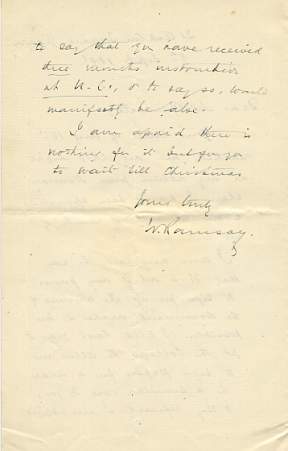 to say that you have received
three months instruction
at U. C., & to say so, would
manifestly be false.
I am afraid there is
nothing for it but for you
to wait till Christmas
Yours truly
W. Ramsay.